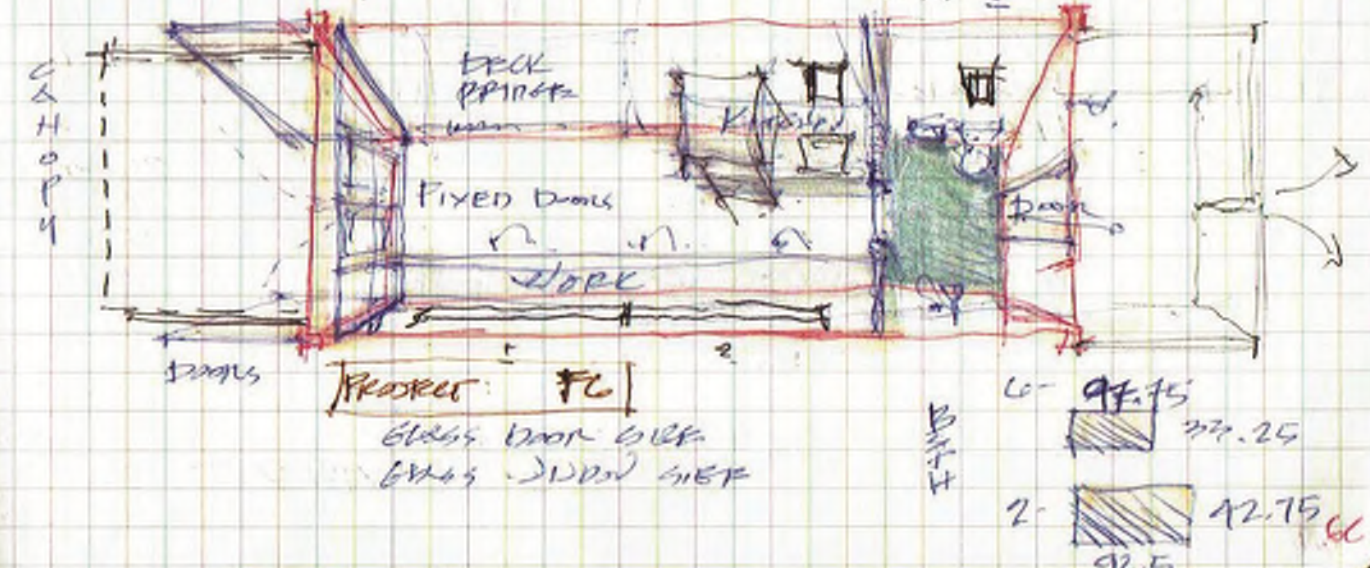 CANOPY
DECK
Kitchen
FIXED Doors
WORK
Door
DOORS
1
2
PROJECT: F6
GLASS DOOR SIZE
GLASS WINDOW SIZE
BATH
6- 97.75
33.25
2- 42.75
92.5